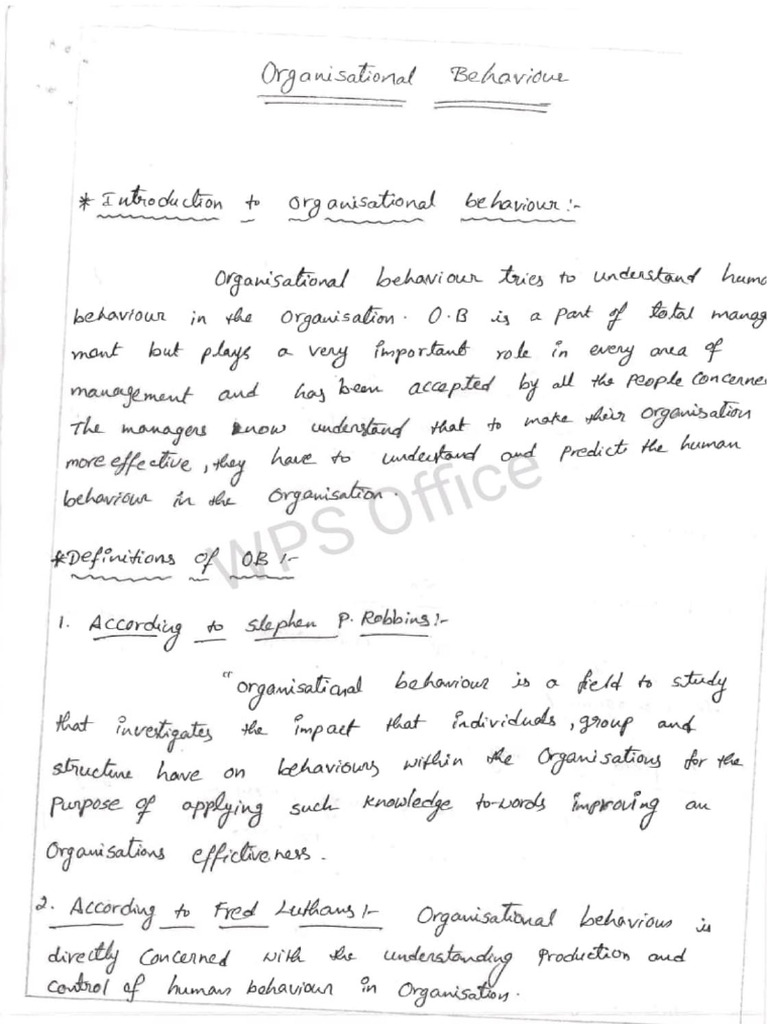 Organisational Behaviour
* Introduction to organisational behaviour:-
Organisational behaviour tries to understand huma
behaviour in the Organisation. O.B is a part of total manag
ment but plays a very important role in every area of
management and has been accepted by all the people concerne
The managers know understand that to make their organisation
more effective, they have to understand and predict the human
behaviour in the Organisation.
WPS Office
* Definitions of OB :-
1. According to Stephen P. Robbins:-
"organisational behaviour is a field to study
that investigates the impact that individuals, group and
structure have on behaviours within the Organisations for the
purpose of applying such knowledge to-words improving an
Organisations effictiveness.
2. According to Fred Luthans:- Organisational behaviour is
directly concerned with the understanding Production and
control of human behaviour in Organisation.